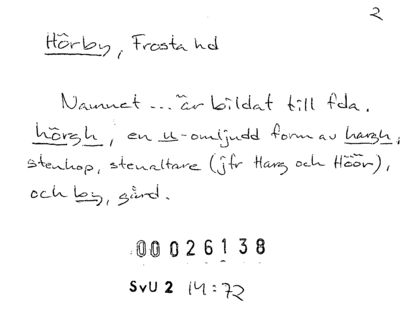 2
Hörby, Frosta hd
Namnet ... är bildat till fda.
hörgh, en u-omljudd form av hargh,
stenhop, stenaltare (jfr Harg och Höör),
och by, gård.
00026138
SvU 2 14:72